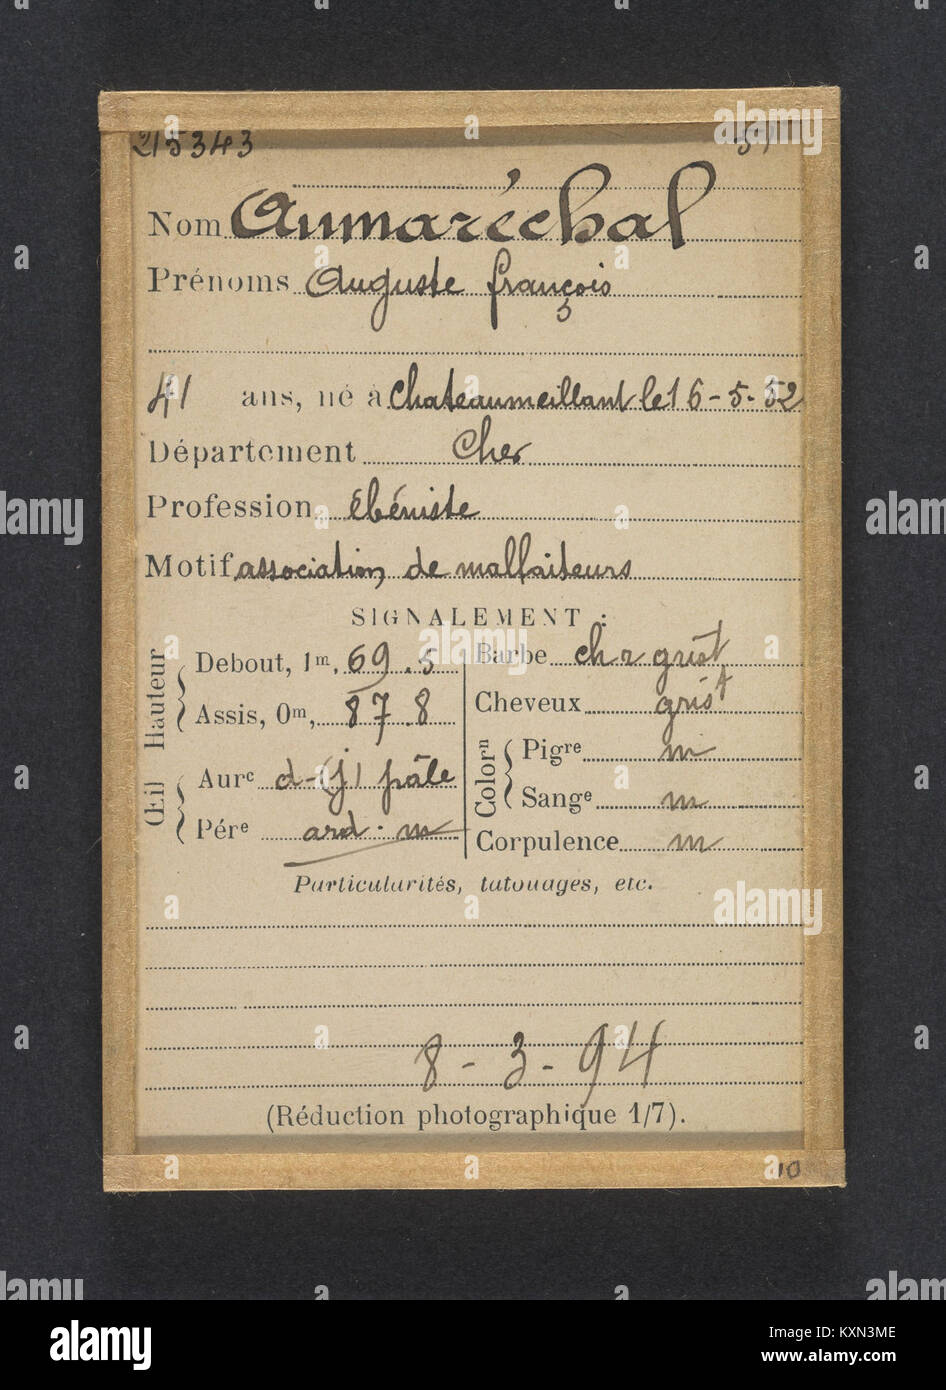 215343 51
Nom Aumaréchal
Prénoms Auguste françois
41 ans, né à Chateaumeillant le 16-5-52
Département Cher
Profession ébéniste
Motif association de malfaiteurs
SIGNALEMENT :
Hauteur
Debout, 1m, 69.5
Assis, 0m, 87.8
Œil
Aurc d-(j) pâle
Pére ard. m
Barbe ch r grist
Cheveux grist
Colorn
Pigre m
Sange m
Corpulence m
Particularités, tatouages, etc.
8-3-94
(Réduction photographique 1/7).
10
alamy
Image ID: KXN3ME
www.alamy.com